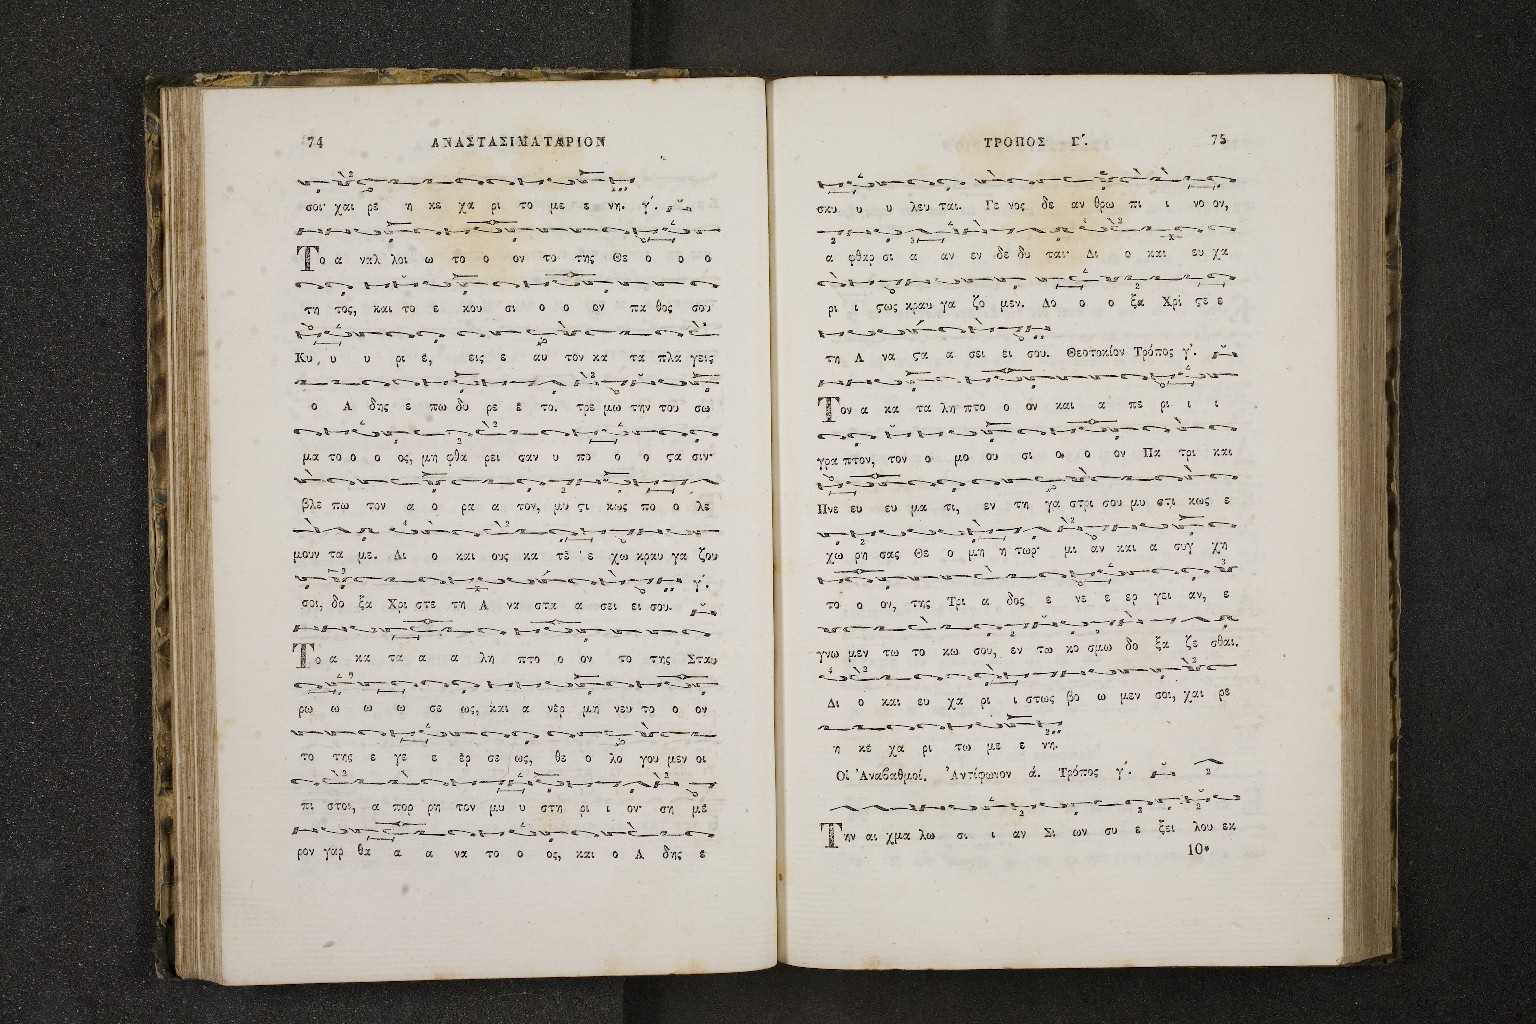 74 ΑΝΑΣΤΑΣΙΜΑΤΑΡΙΟΝ
σοι· χαι ρε η κε χα ρι το με ε νη. γ΄.
Το α ναλ λοι ω το ο ον το της Θε ο ο ο
τη τος, και το ε κου σι ο ο ον πα θος σου
Κυ υ υ ρι ε, εις ε αυ τον κα τα πλα γεις
ο Α δης ε πω δυ ρε ε το. τρε μω την του σω
μα το ο ο ος, μη φθα ρει σαν υ πο ο ο ϛα σιν·
βλε πω τον α ο ρα α τον, μυ ϛι κως πο ο λε
μουν τα με. Δι ο και ους κα τε ε χω κραυ γα ζου
σοι, δο ξα Χρι στε τη Α να στα α σει ει σου. γ΄.
Το α κα τα α α λη πτο ο ον το της Σταυ
ρω ω ω ω σε ως, και α νερ μη νευ το ο ον
το της ε γε ε ερ σε ως, θε ο λο γου μεν οι
πι στοι, α πορ ρη τον μυ υ στη ρι ι ον· ση με
ρον γαρ θα α α να το ο ος, και ο Α δης ε
ΤΡΟΠΟΣ Γ΄. 75
σκυ υ υ λευ ται. Γε νος δε αν θρω πι ι νο ον,
α φθαρ σι α αν εν δε δυ ται· Δι ο και ευ χα
ρι ι ϛως κραυ γα ζο μεν. Δο ο ο ξα Χρι ϛε ε
τη Α να ϛα α σει ει σου. Θεοτοκίον Τρόπος γ΄.
Τον α κα τα λη πτο ο ον και α πε ρι ι ι
γρα πτον, τον ο μο ου σι ο ο ον Πα τρι και
Πνε ευ ευ μα τι, εν τη γα στρι σου μυ στι κως ε
χω ρη σας Θε ο μη η τωρ· μι αν και α συγ χη
το ο ον, της Τρι α δος ε νε ε ερ γει αν, ε
γνω μεν τω το κω σου, εν τω κο σμω δο ξα ζε σθαι.
Δι ο και ευ χα ρι ι στως βο ω μεν σοι, χαι ρε
η κε χα ρι τω με ε νη.
Οἱ Ἀναβαθμοί. Ἀντίφωνον ά. Τρόπος γ΄.
Την αι χμα λω σι ι αν Σι ων συ ε ξει λου εκ
10*